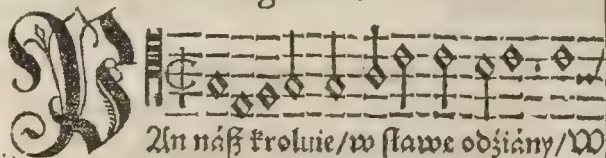 PAn náß kroluie/w sławe odźiány/W